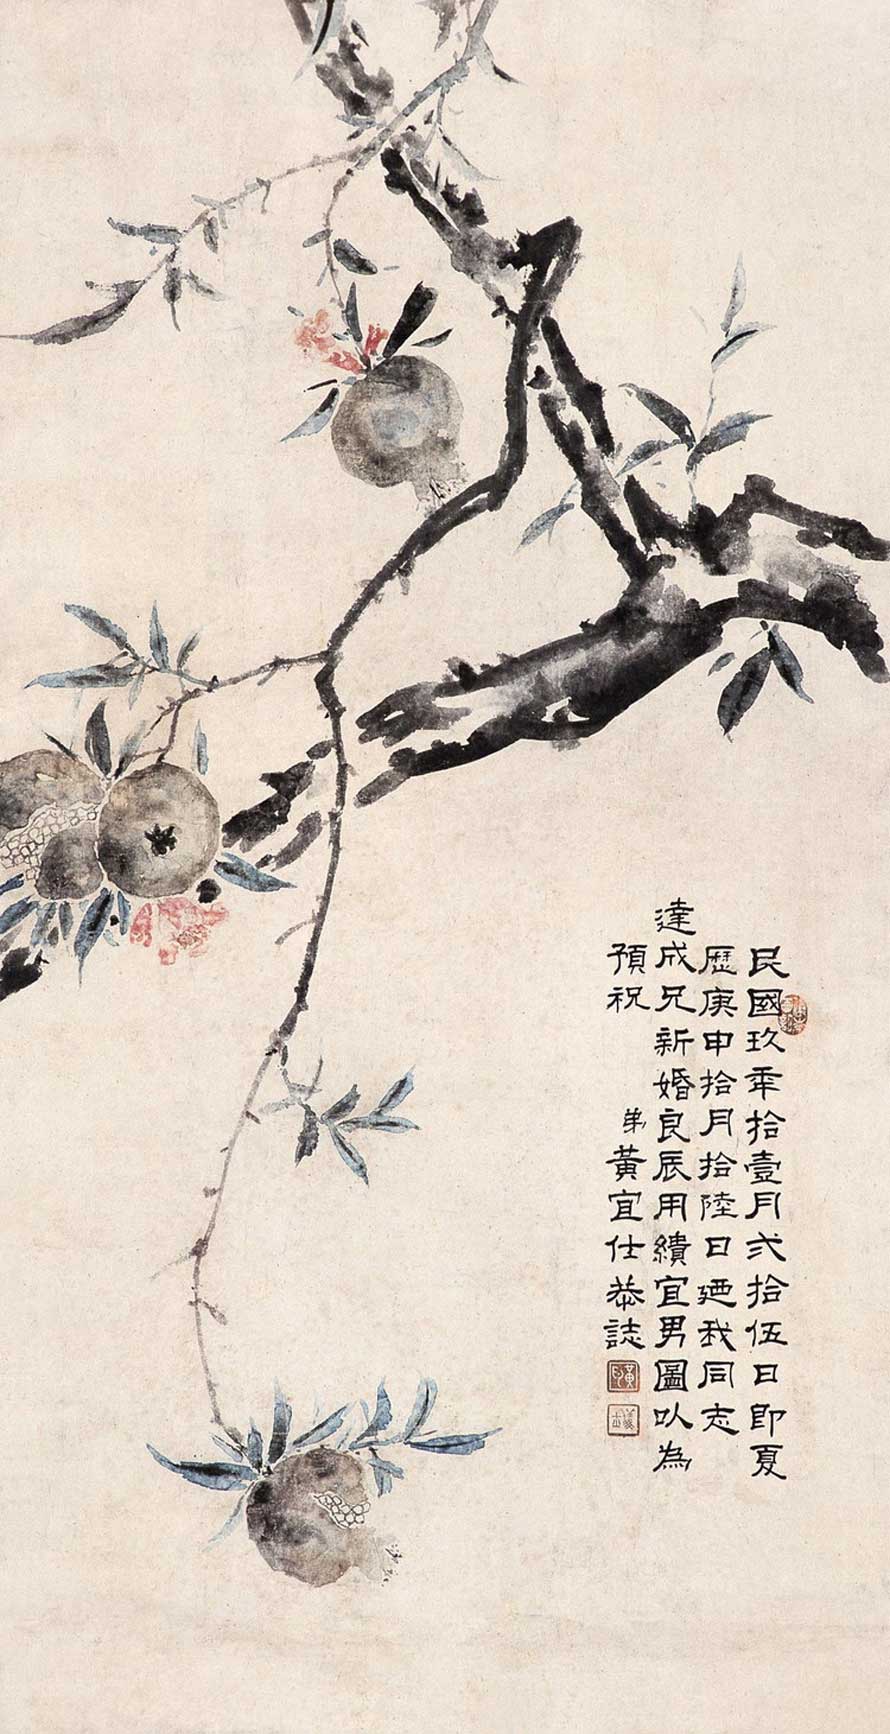 民國玖年拾壹月弍拾伍日即夏
歷庚申拾月拾陸日廼我同志
達成兄新婚良辰用繢宜男圖以為
預祝
弟黃宜仕恭誌